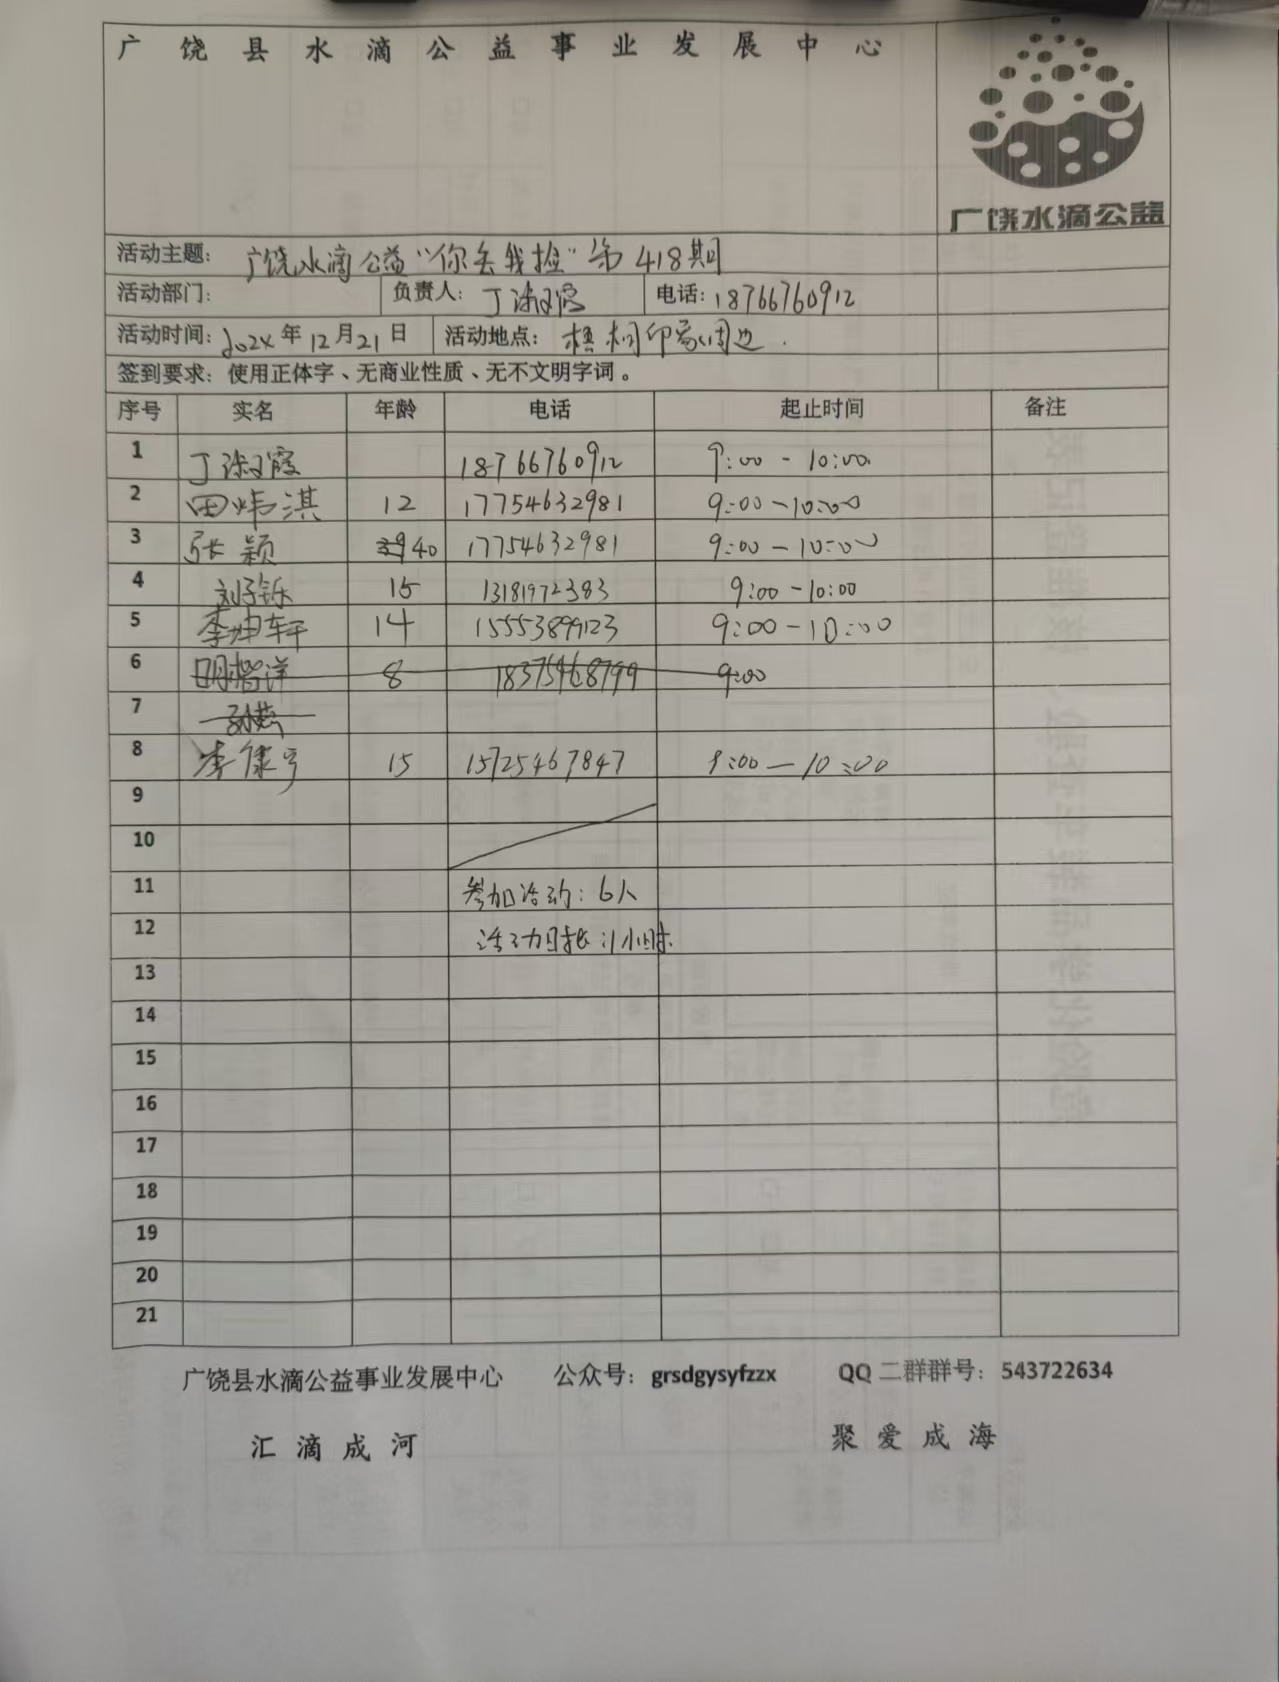 广饶县水滴公益事业发展中心
广饶水滴公益
活动主题: 广饶水滴公益“你丢我捡”第418期
活动部门: 负责人: 丁淑霞 电话: 18766760912
活动时间: 2024年12月21日 活动地点: 梧桐印象周边.
签到要求: 使用正体字、无商业性质、无不文明字词。
序号 实名 年龄 电话 起止时间 备注
1 丁淑霞 18766760912 9:00-10:00
2 田炜淇 12 17754632981 9:00-10:00
3 张颖 39 40 17754632981 9:00-10:00
4 刘子铄 15 13181972383 9:00-10:00
5 李坤轩 14 15553899123 9:00-10:00
6 明楷洋 8 18375468799 9:00
7 孙燕
8 李康宁 15 15725467847 9:00—10:00
9
10
11 参加活动: 6人
12 活动时长: 1小时.
13
14
15
16
17
18
19
20
21
广饶县水滴公益事业发展中心 公众号: grsdgysyfzzx QQ二群群号: 543722634
汇滴成河 聚爱成海